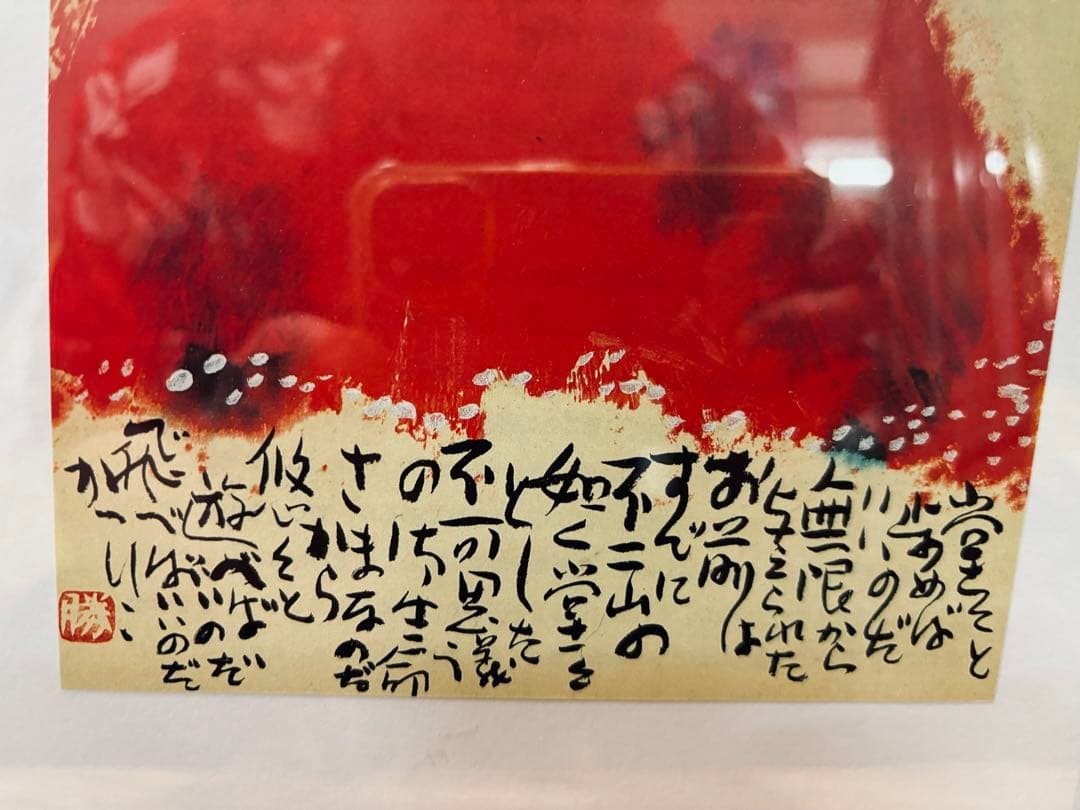 堂々と
歩めば
いいのだ
無限から
与えられた
お前は
すでに
不二山の
如く堂々
とした
不可思議
の 生命
さまなのだ
から
悠々と
遊べば いいのだ
飛べばいいのだ
勝